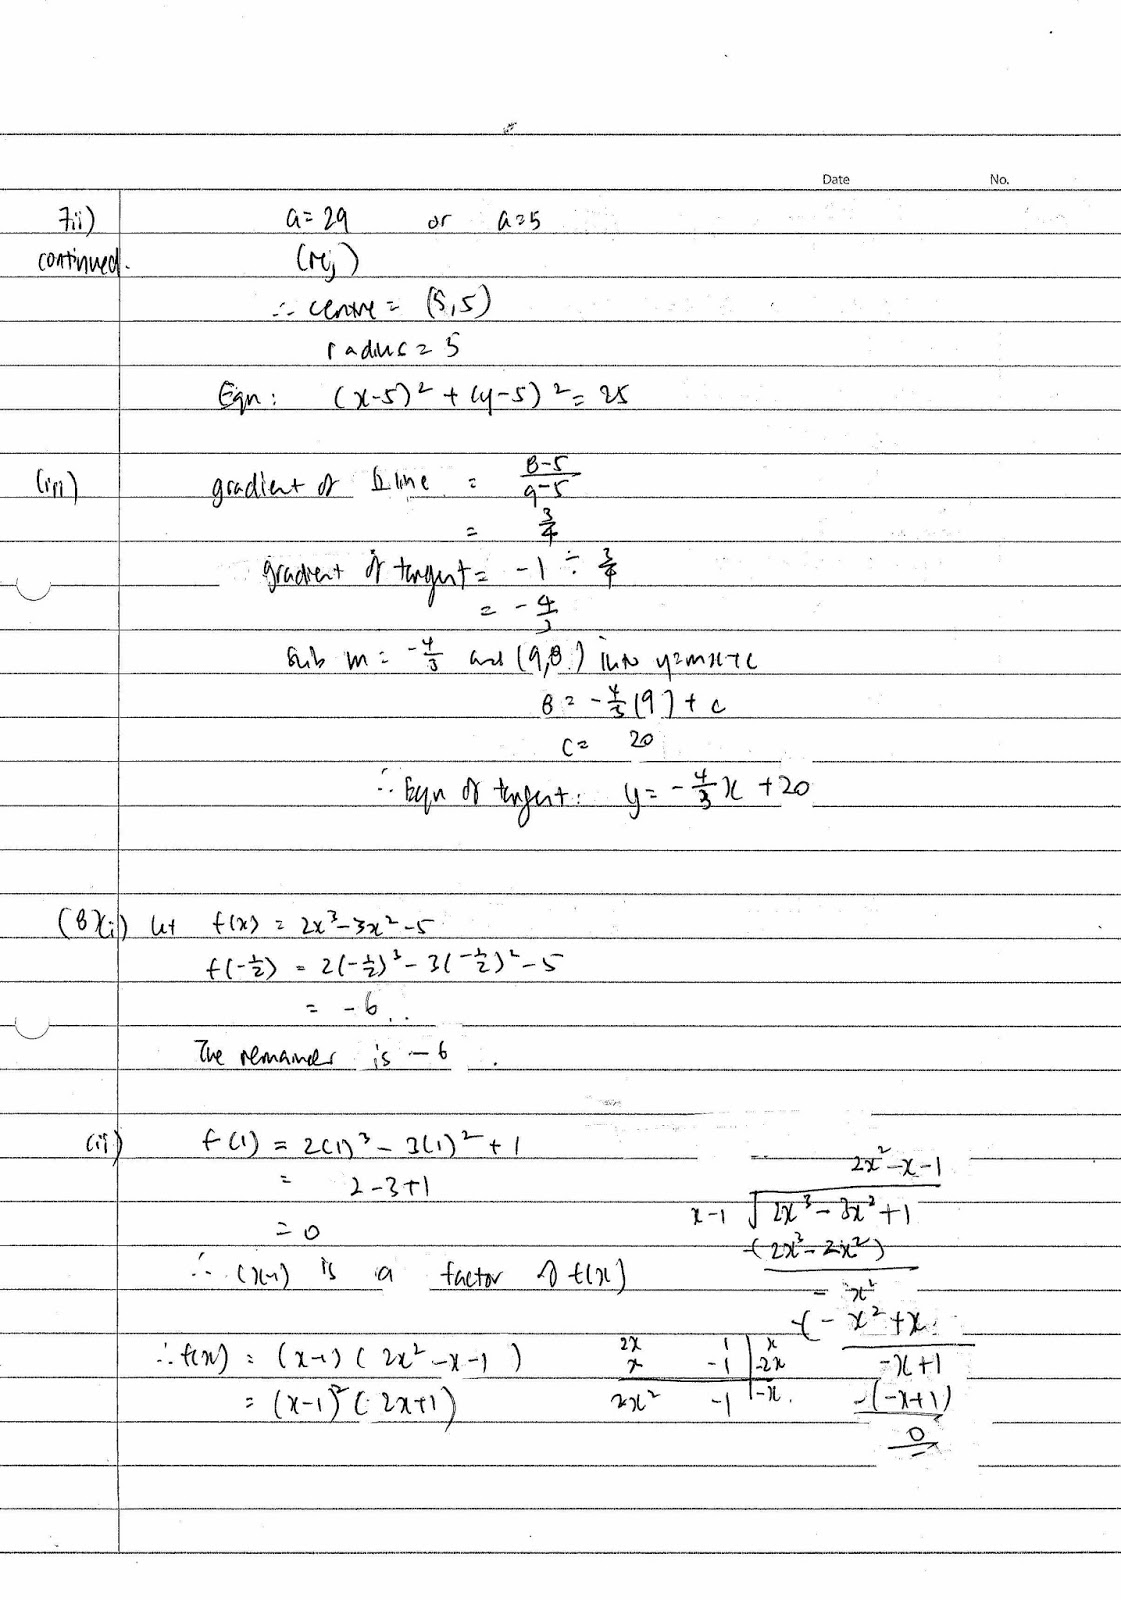 Date No.
7ii) a = 29 or a = 5
continued. (rej)
∴ centre = (5,5)
radius = 5
Eqn: (x-5)² + (y-5)² = 25
(iii) gradient of ⊥ line = \frac{8-5}{9-5}
= \frac{3}{4}
gradient of tangent = -1 ÷ \frac{3}{4}
= -\frac{4}{3}
sub m = -\frac{4}{3} and (9,8) into y=mx+c
8 = -\frac{4}{3}(9) + c
c = 20
∴ Eqn of tangent: y = -\frac{4}{3}x + 20
(8)(i) let f(x) = 2x³-3x²-5
f(-\frac{1}{2}) = 2(-\frac{1}{2})³ - 3(-\frac{1}{2})² - 5
= -6
The remainder is -6.
(ii) f(1) = 2(1)³ - 3(1)² + 1
= 2-3+1
= 0
∴ (x-1) is a factor of f(x)
∴ f(x) = (x-1)(2x²-x-1)
= (x-1)²(2x+1)
2x 1 | x
x -1 | -2x
2x² -1 | -x
2x²-x-1
x-1 √2x³-3x²+1
-(2x³-2x²)
-x²
-(-x²+x
-x+1
-(-x+1)
0